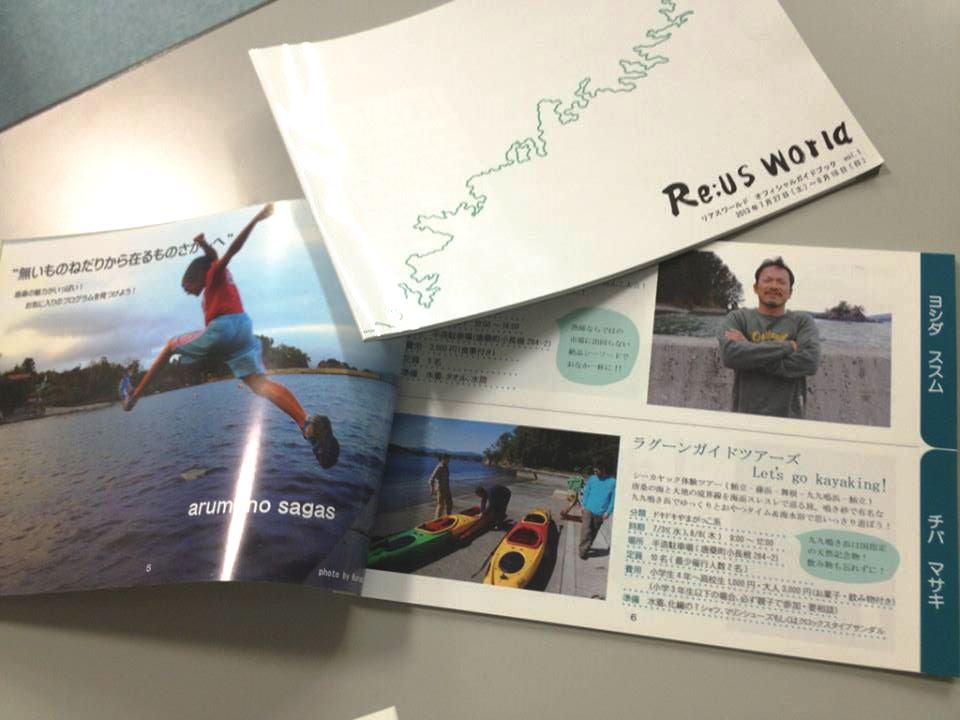 Re:US World
リアスワールド オフィシャルガイドブック vol.1
2013年7月27日(土)〜8月18日(日)
"無いものねだりから在るものさがしへ"
唐桑の魅力がいっぱい!
お気に入りのプログラムを見つけよう!
arumono sagas
5
photo by
10:00 〜 14:00
半造駐車場(唐桑町小長根 284-2)
費用 3,000円(食事付き)
定員 5名
準備 水着、タオル、水筒
漁師ならではの
市場に出回らない
絶品シーフードで
おなか一杯に!!
ヨシダ ススム
ラグーンガイドツアーズ
Let's go kayaking!
シーカヤック体験ツアー(鮪立‐藤浜‐舞根・九九鳴浜‐鮪立)
唐桑の海と大地の境界線を海面スレスレで巡る旅。鳴き砂で有名な
九九鳴き浜でゆっくりとおやつタイム&海水浴で思いっきり遊ぼう!
分類 ドキドキやまがっこ系
時間 7/31(水)、8/8(木) 9:00 〜 12:00
場所 半造駐車場(唐桑町小長根 284-2)
定員 10名(最少催行人数2名)
費用 小学生4年〜高校生 1,000円・大人 3,000円(お菓子・飲み物付き)
(小学3年生以下の場合、必ず親子で参加・要相談)
準備 水着、化繊のTシャツ、マリンシューズもしくはクロックスタイプサンダル
九九鳴き浜は国指定
の天然記念物!
飲み物も忘れずに!
6
チバ マサキ